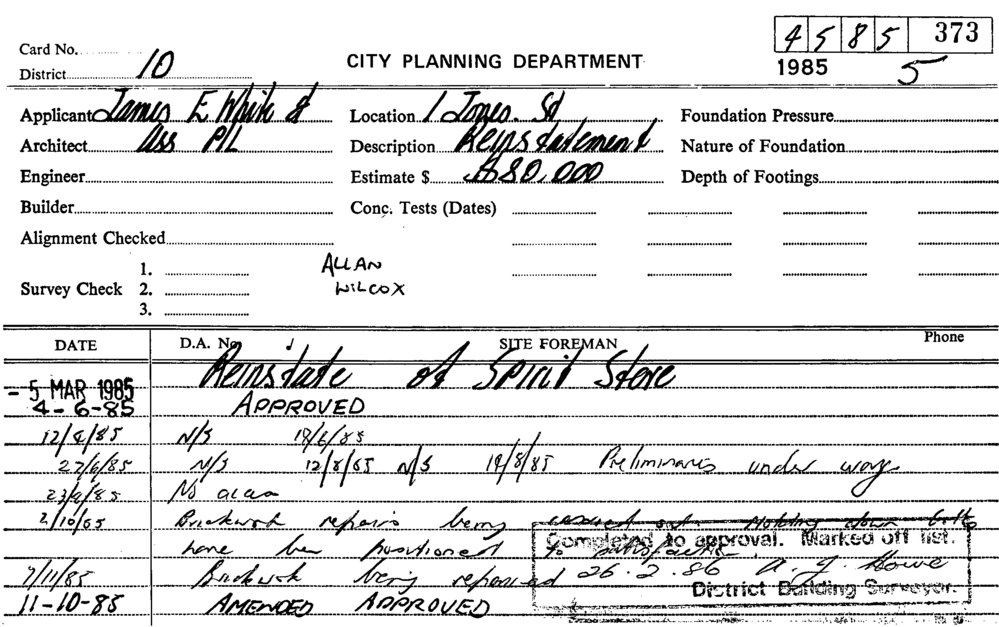 4585 373
Card No.
District 10
CITY PLANNING DEPARTMENT
1985 5
Applicant James E White &
Location 1 Jones. St
Foundation Pressure
Architect Ass P/L
Description Reinstatement
Nature of Foundation
Engineer
Estimate $ $80,000
Depth of Footings
Builder
Conc. Tests (Dates)
Alignment Checked
Survey Check 1.
2.
3.
ALLAN
WILCOX
DATE D.A. No. SITE FOREMAN Phone
- 5 MAR 1985 Reinstate of Spirit Store
4-6-85 APPROVED
12/6/85 N/S 18/6/85
27/6/85 N/S 12/8/85 N/S 19/8/85 Preliminaries under way
23/9/85 No
2/10/85 Brickwork repairs being carried out Holding down bolts
have been positioned to satisfaction
Completed to approval. Marked off list.
7/11/85 Brickwork being repaired 26.2.86 A. J. Howe
District Building Surveyor.
11-10-85 AMENDED APPROVED